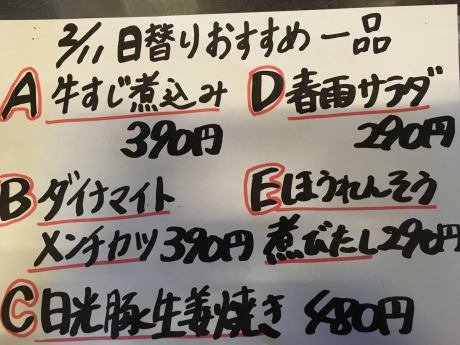 2/11 日替りおすすめ一品
A 牛すじ煮込み
390円
B ダイナマイト
メンチカツ 390円
C 日光豚生姜焼き 480円
D 春雨サラダ
290円
E ほうれんそう
煮びたし 290円